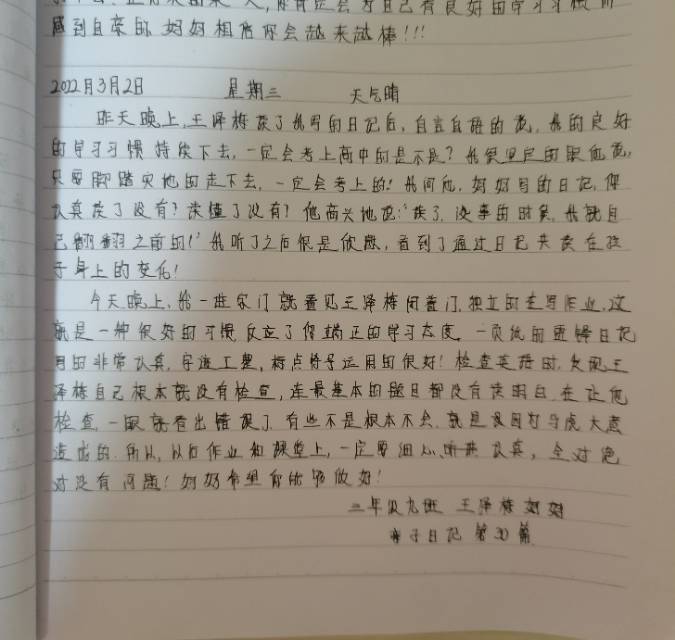 感到自豪的，妈妈相信你会越来越棒!!!
2022月3月2日 星期三 天气晴
昨天晚上，王泽栋读了我写的日记后，自言自语的说，我的良好
的学习习惯 持续下去，一定会考上高中的是不是? 我很坚定的跟他说，
只要脚踏实地的走下去，一定会考上的! 我问他，妈妈写的日记，你
认真读了没有? 读懂了没有? 他高兴地说:"读了，没事的时候，我就自
己翻翻之前的!"我听了之后很是欣慰，看到了通过日记 在孩
子身上的变化!
今天晚上，我一进家门 就看见王泽栋闭着门，独立的在写作业，这
就是一种很好的习惯，反应了你端正的学习态度。一页纸的 日记
写的非常认真，字迹工整，标点符号运用的很好! 检查英语时，发现王
泽栋自己根本就没有检查，连最基本的题目都没有读明白，在让他
检查，一眼就看出错误了，有些不是根本不会，就是 马虎大意
造成的，所以，以后作业和课堂上，一定要细心，听讲认真，全对绝
对没有问题! 妈妈希望你能够做好!
三年级九班 王泽栋妈妈
亲子日记 第30篇